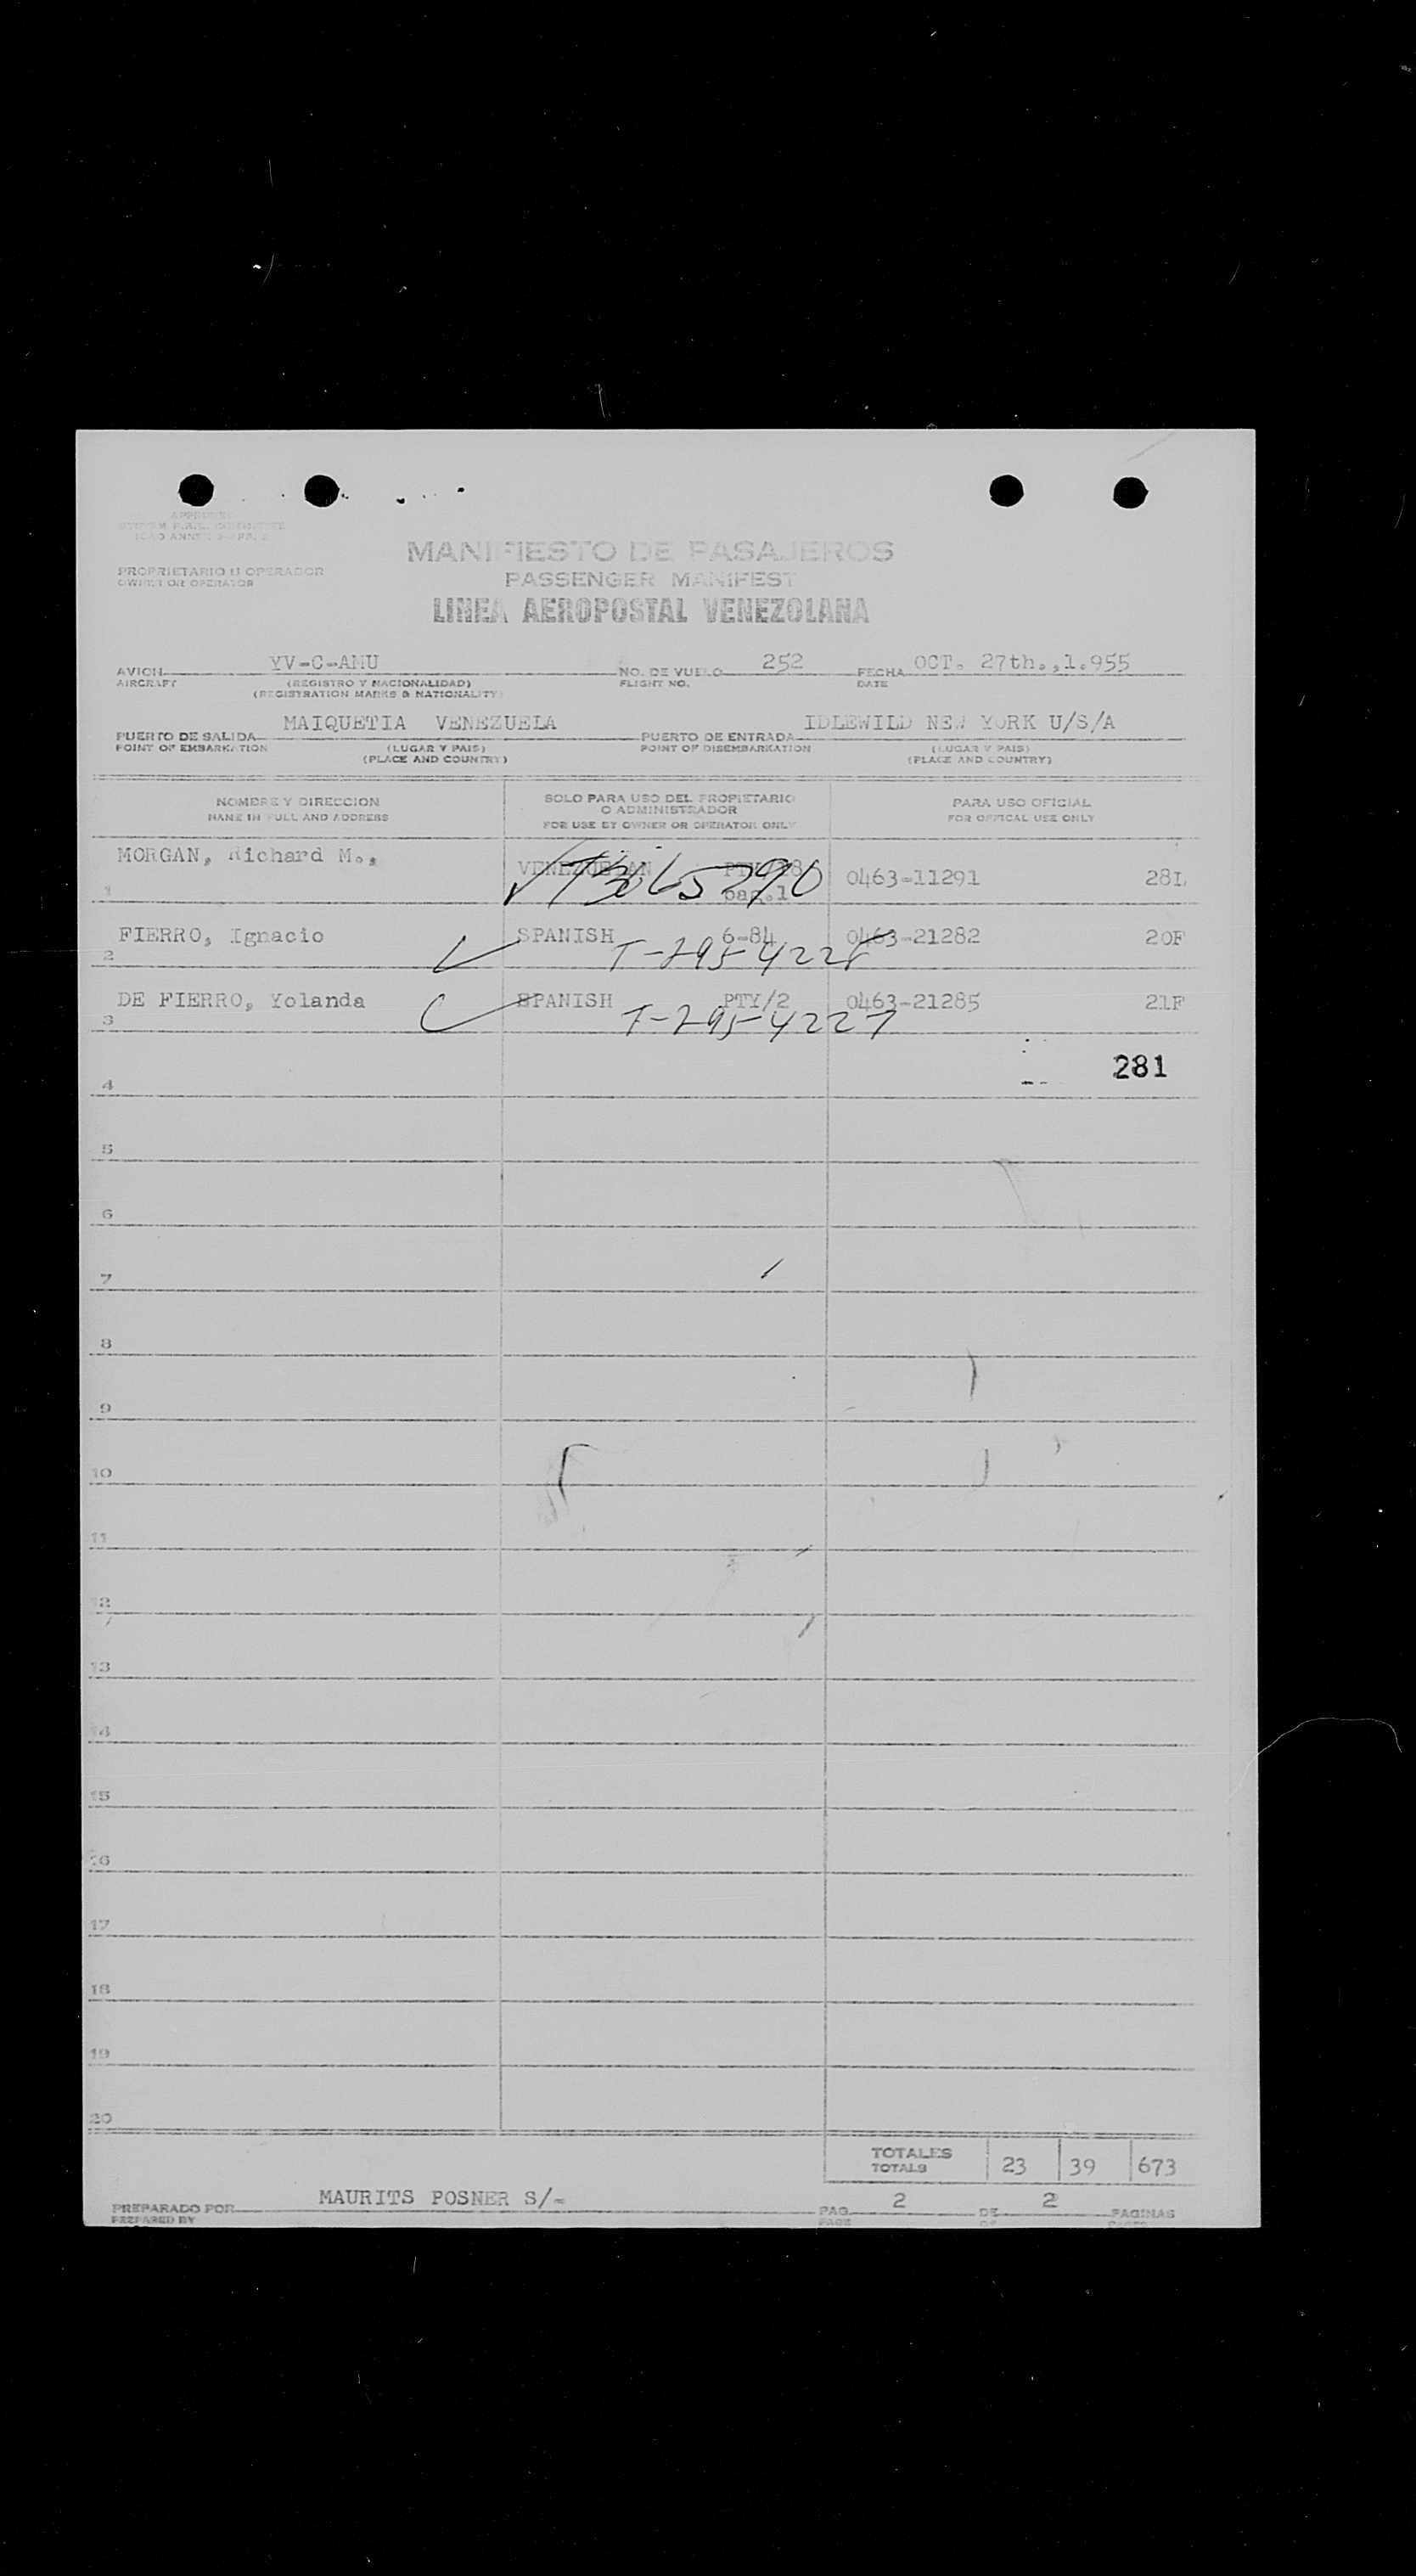 MANIFIESTO DE PASAJEROS
PROPRIETARIO U OPERADOR
OWNER OR OPERATOR
PASSENGER MANIFEST
LINEA AEROPOSTAL VENEZOLANA
AVION YV-C-AMU NO. DE VUELO 252 FECHA OCT. 27th.,1.955
AIRCRAFT (REGISTRO Y NACIONALIDAD) FLIGHT NO. DATE
(REGISTRATION MARKS & NATIONALITY)
PUERTO DE SALIDA MAIQUETIA VENEZUELA PUERTO DE ENTRADA IDLEWILD NEW YORK U/S/A
POINT OF EMBARKATION (LUGAR Y PAIS) POINT OF DISEMBARKATION (LUGAR Y PAIS)
(PLACE AND COUNTRY) (PLACE AND COUNTRY)
NOMBRE Y DIRECCION SOLO PARA USO DEL PROPIETARIO PARA USO OFICIAL
O ADMINISTRADOR
NAME IN FULL AND ADDRESS FOR USE BY OWNER OR OPERATOR ONLY FOR OFFICAL USE ONLY
MORGAN, Richard M., VENEZUELAN PTY/18 0463-11291 28L
1 pag.1
FIERRO, Ignacio SPANISH 6-84 0463-21282 20F
2
DE FIERRO, Yolanda SPANISH PTY/2 0463-21285 21F
3 T-295-4227
281
4
5
6
7
8
9
10
11
12
13
14
15
16
17
18
19
20
TOTALES 23 39 673
TOTALS
PREPARADO POR MAURITS POSNER S/- PAG. 2 DE 2 PAGINAS
PREPARED BY PAGE OF